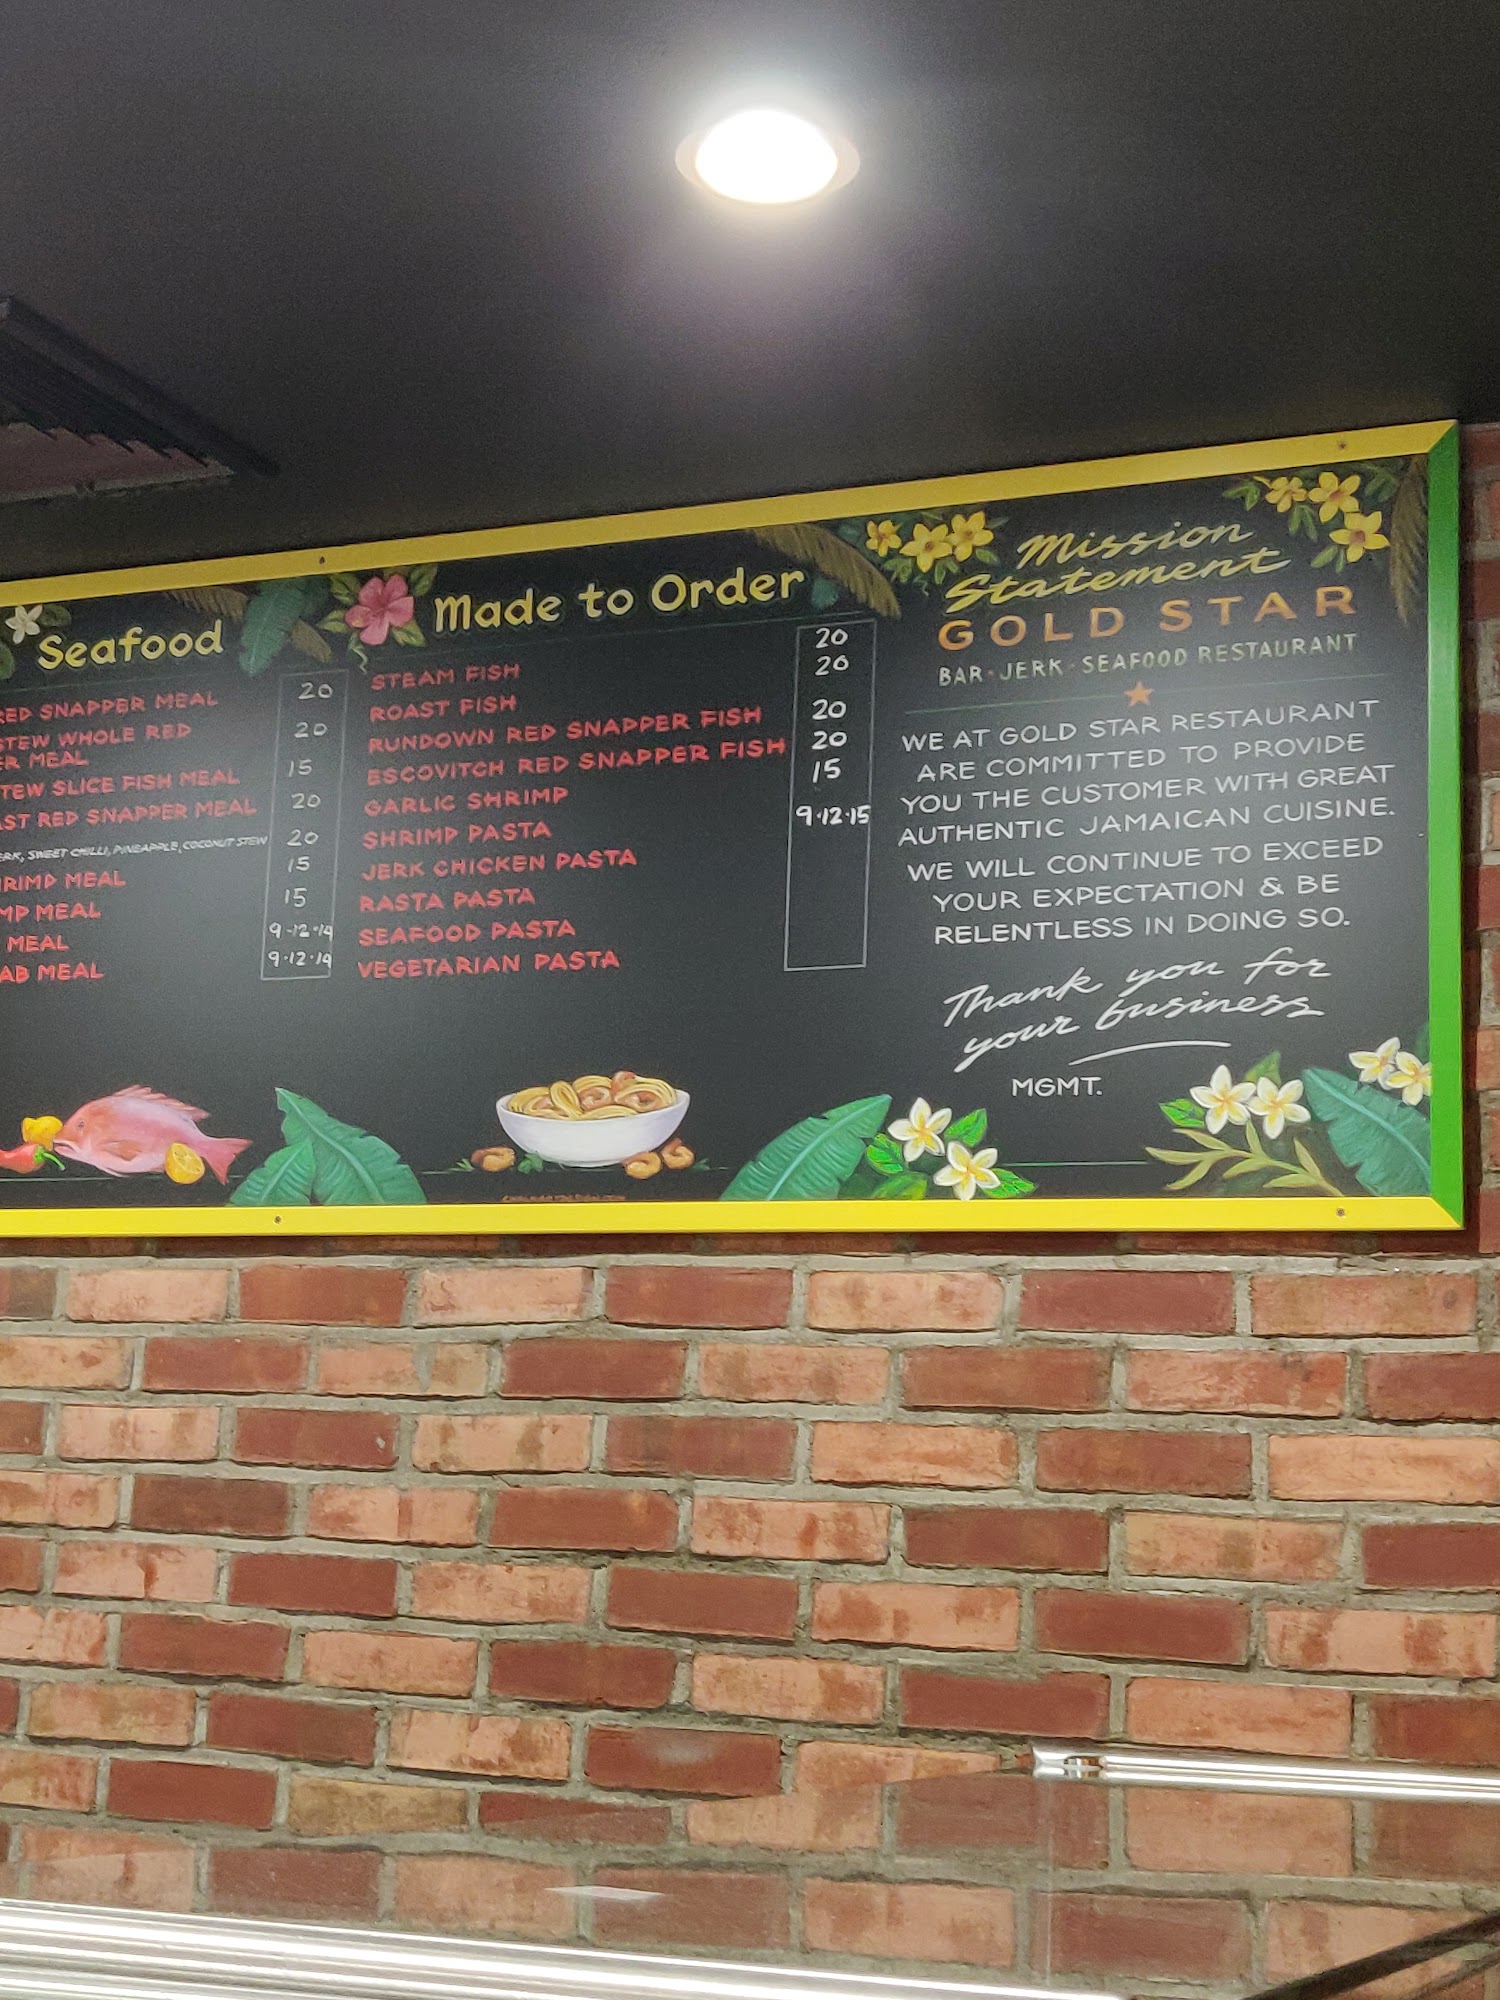 Seafood
RED SNAPPER MEAL 20
STEW WHOLE RED 20
MEAL
STEW SLICE FISH MEAL 15
RED SNAPPER MEAL 20
SWEET CHILLI, PINEAPPLE, COCONUT STEW 20
MEAL 15
MEAL 15
MEAL 9-12-14
MEAL 9-12-14
Made to Order
STEAM FISH 20
ROAST FISH 20
RUNDOWN RED SNAPPER FISH 20
ESCOVITCH RED SNAPPER FISH 20
GARLIC SHRIMP 15
SHRIMP PASTA 9-12-15
JERK CHICKEN PASTA
RASTA PASTA
SEAFOOD PASTA
VEGETARIAN PASTA
Mission
Statement
GOLD STAR
BAR · JERK · SEAFOOD RESTAURANT
WE AT GOLD STAR RESTAURANT
ARE COMMITTED TO PROVIDE
YOU THE CUSTOMER WITH GREAT
AUTHENTIC JAMAICAN CUISINE.
WE WILL CONTINUE TO EXCEED
YOUR EXPECTATION & BE
RELENTLESS IN DOING SO.
Thank you for
your business
MGMT.